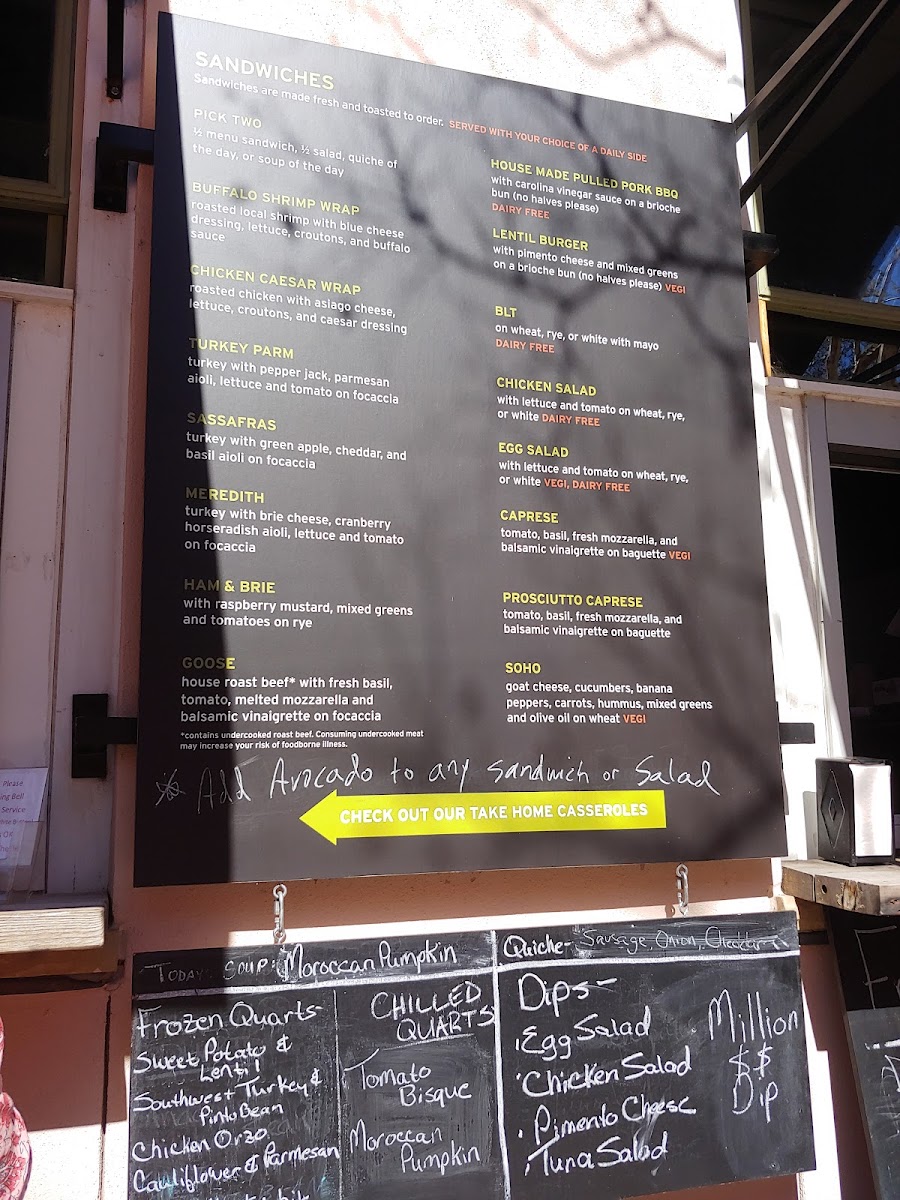 SANDWICHES
Sandwiches are made fresh and toasted to order. SERVED WITH YOUR CHOICE OF A DAILY SIDE
PICK TWO
½ menu sandwich, ½ salad, quiche of
the day, or soup of the day
BUFFALO SHRIMP WRAP
roasted local shrimp with blue cheese
dressing, lettuce, croutons, and buffalo
sauce
CHICKEN CAESAR WRAP
roasted chicken with asiago cheese,
lettuce, croutons, and caesar dressing
TURKEY PARM
turkey with pepper jack, parmesan
aioli, lettuce and tomato on focaccia
SASSAFRAS
turkey with green apple, cheddar, and
basil aioli on focaccia
MEREDITH
turkey with brie cheese, cranberry
horseradish aioli, lettuce and tomato
on focaccia
HAM & BRIE
with raspberry mustard, mixed greens
and tomatoes on rye
GOOSE
house roast beef* with fresh basil,
tomato, melted mozzarella and
balsamic vinaigrette on focaccia
*contains undercooked roast beef. Consuming undercooked meat
may increase your risk of foodborne illness.
HOUSE MADE PULLED PORK BBQ
with carolina vinegar sauce on a brioche
bun (no halves please)
DAIRY FREE
LENTIL BURGER
with pimento cheese and mixed greens
on a brioche bun (no halves please) VEGI
BLT
on wheat, rye, or white with mayo
DAIRY FREE
CHICKEN SALAD
with lettuce and tomato on wheat, rye,
or white DAIRY FREE
EGG SALAD
with lettuce and tomato on wheat, rye,
or white VEGI, DAIRY FREE
CAPRESE
tomato, basil, fresh mozzarella, and
balsamic vinaigrette on baguette VEGI
PROSCIUTTO CAPRESE
tomato, basil, fresh mozzarella, and
balsamic vinaigrette on baguette
SOHO
goat cheese, cucumbers, banana
peppers, carrots, hummus, mixed greens
and olive oil on wheat VEGI
* Add Avocado to any sandwich or Salad
CHECK OUT OUR TAKE HOME CASSEROLES
TODAYS SOUP: Moroccan Pumpkin
Frozen Quarts-
Sweet Potato &
Lentil
Southwest Turkey &
Pinto Bean
Chicken Orzo
Cauliflower & Parmesan
CHILLED
QUARTS
Tomato
Bisque
Moroccan
Pumpkin
Quiche- Sausage, Onion, Cheddar
Dips-
Egg Salad
Chicken Salad
Pimento Cheese
Tuna Salad
Million
$$
Dip
Please
Bell
Service